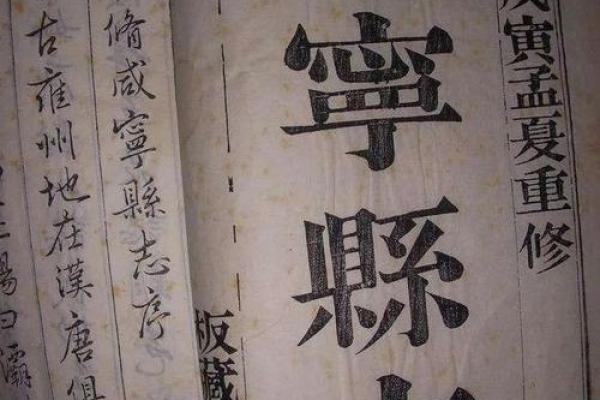 戊寅孟夏重修
寧縣
板藏
脩咸寧縣志序
古雍州地在漢唐俱
陽曰灞